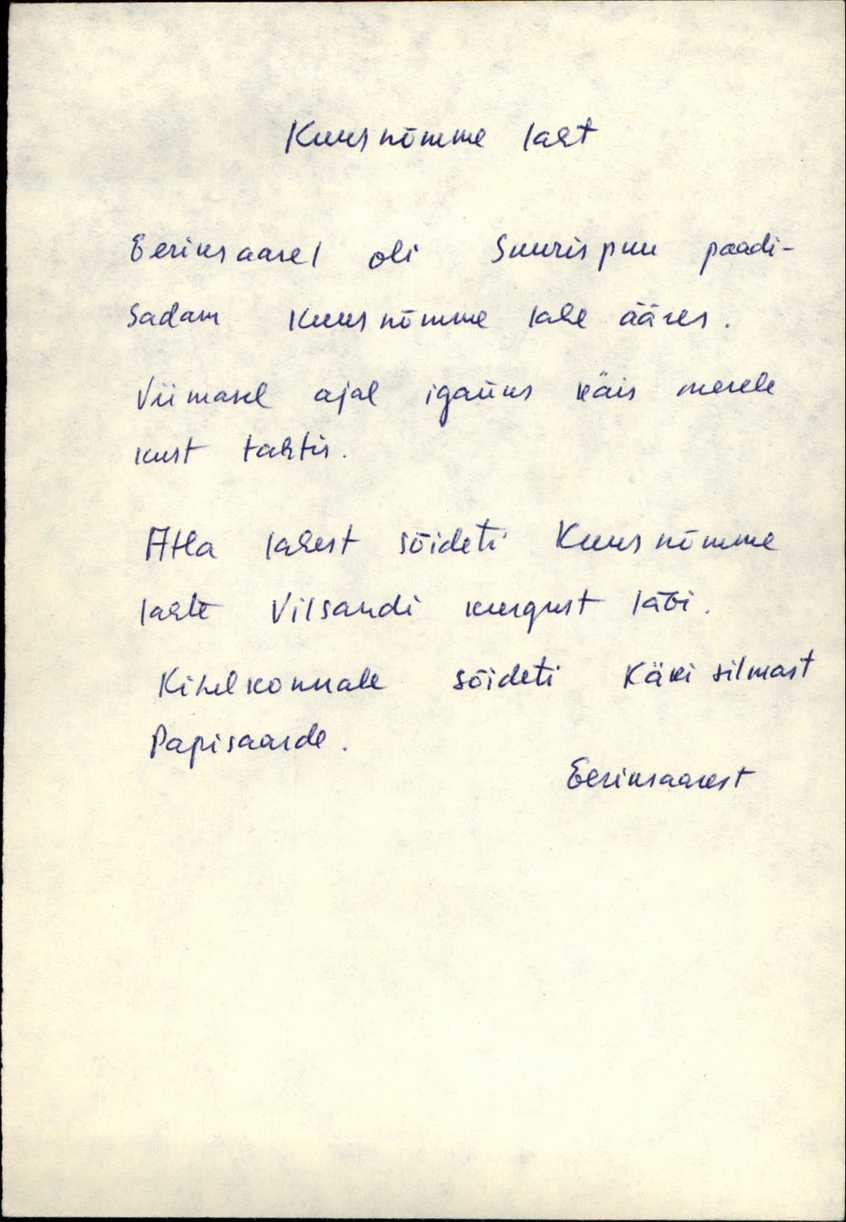 Kuusnõmme laht
Eeriksaarel oli Suurispuu paadi-
sadam Kuusnõmme lahe ääres.
Viimasel ajal igaüks käis merele
kust tahtis.
Atla lahest sõideti Kuusnõmme
lahte Vilsandi kurgust läbi.
Kihelkonnale sõideti Käkisilmast
Papisaarde.
Eeriksaarest